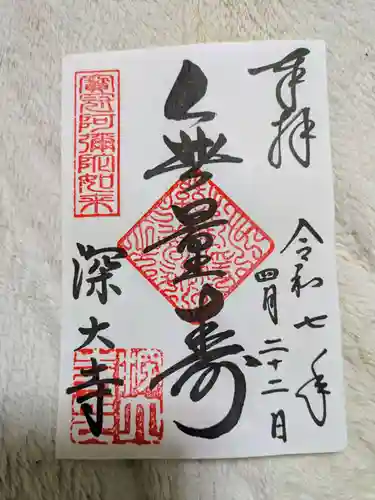 奉拝
令和七年
四月二十二日
無量壽
寳冠阿彌陀如来
深大寺